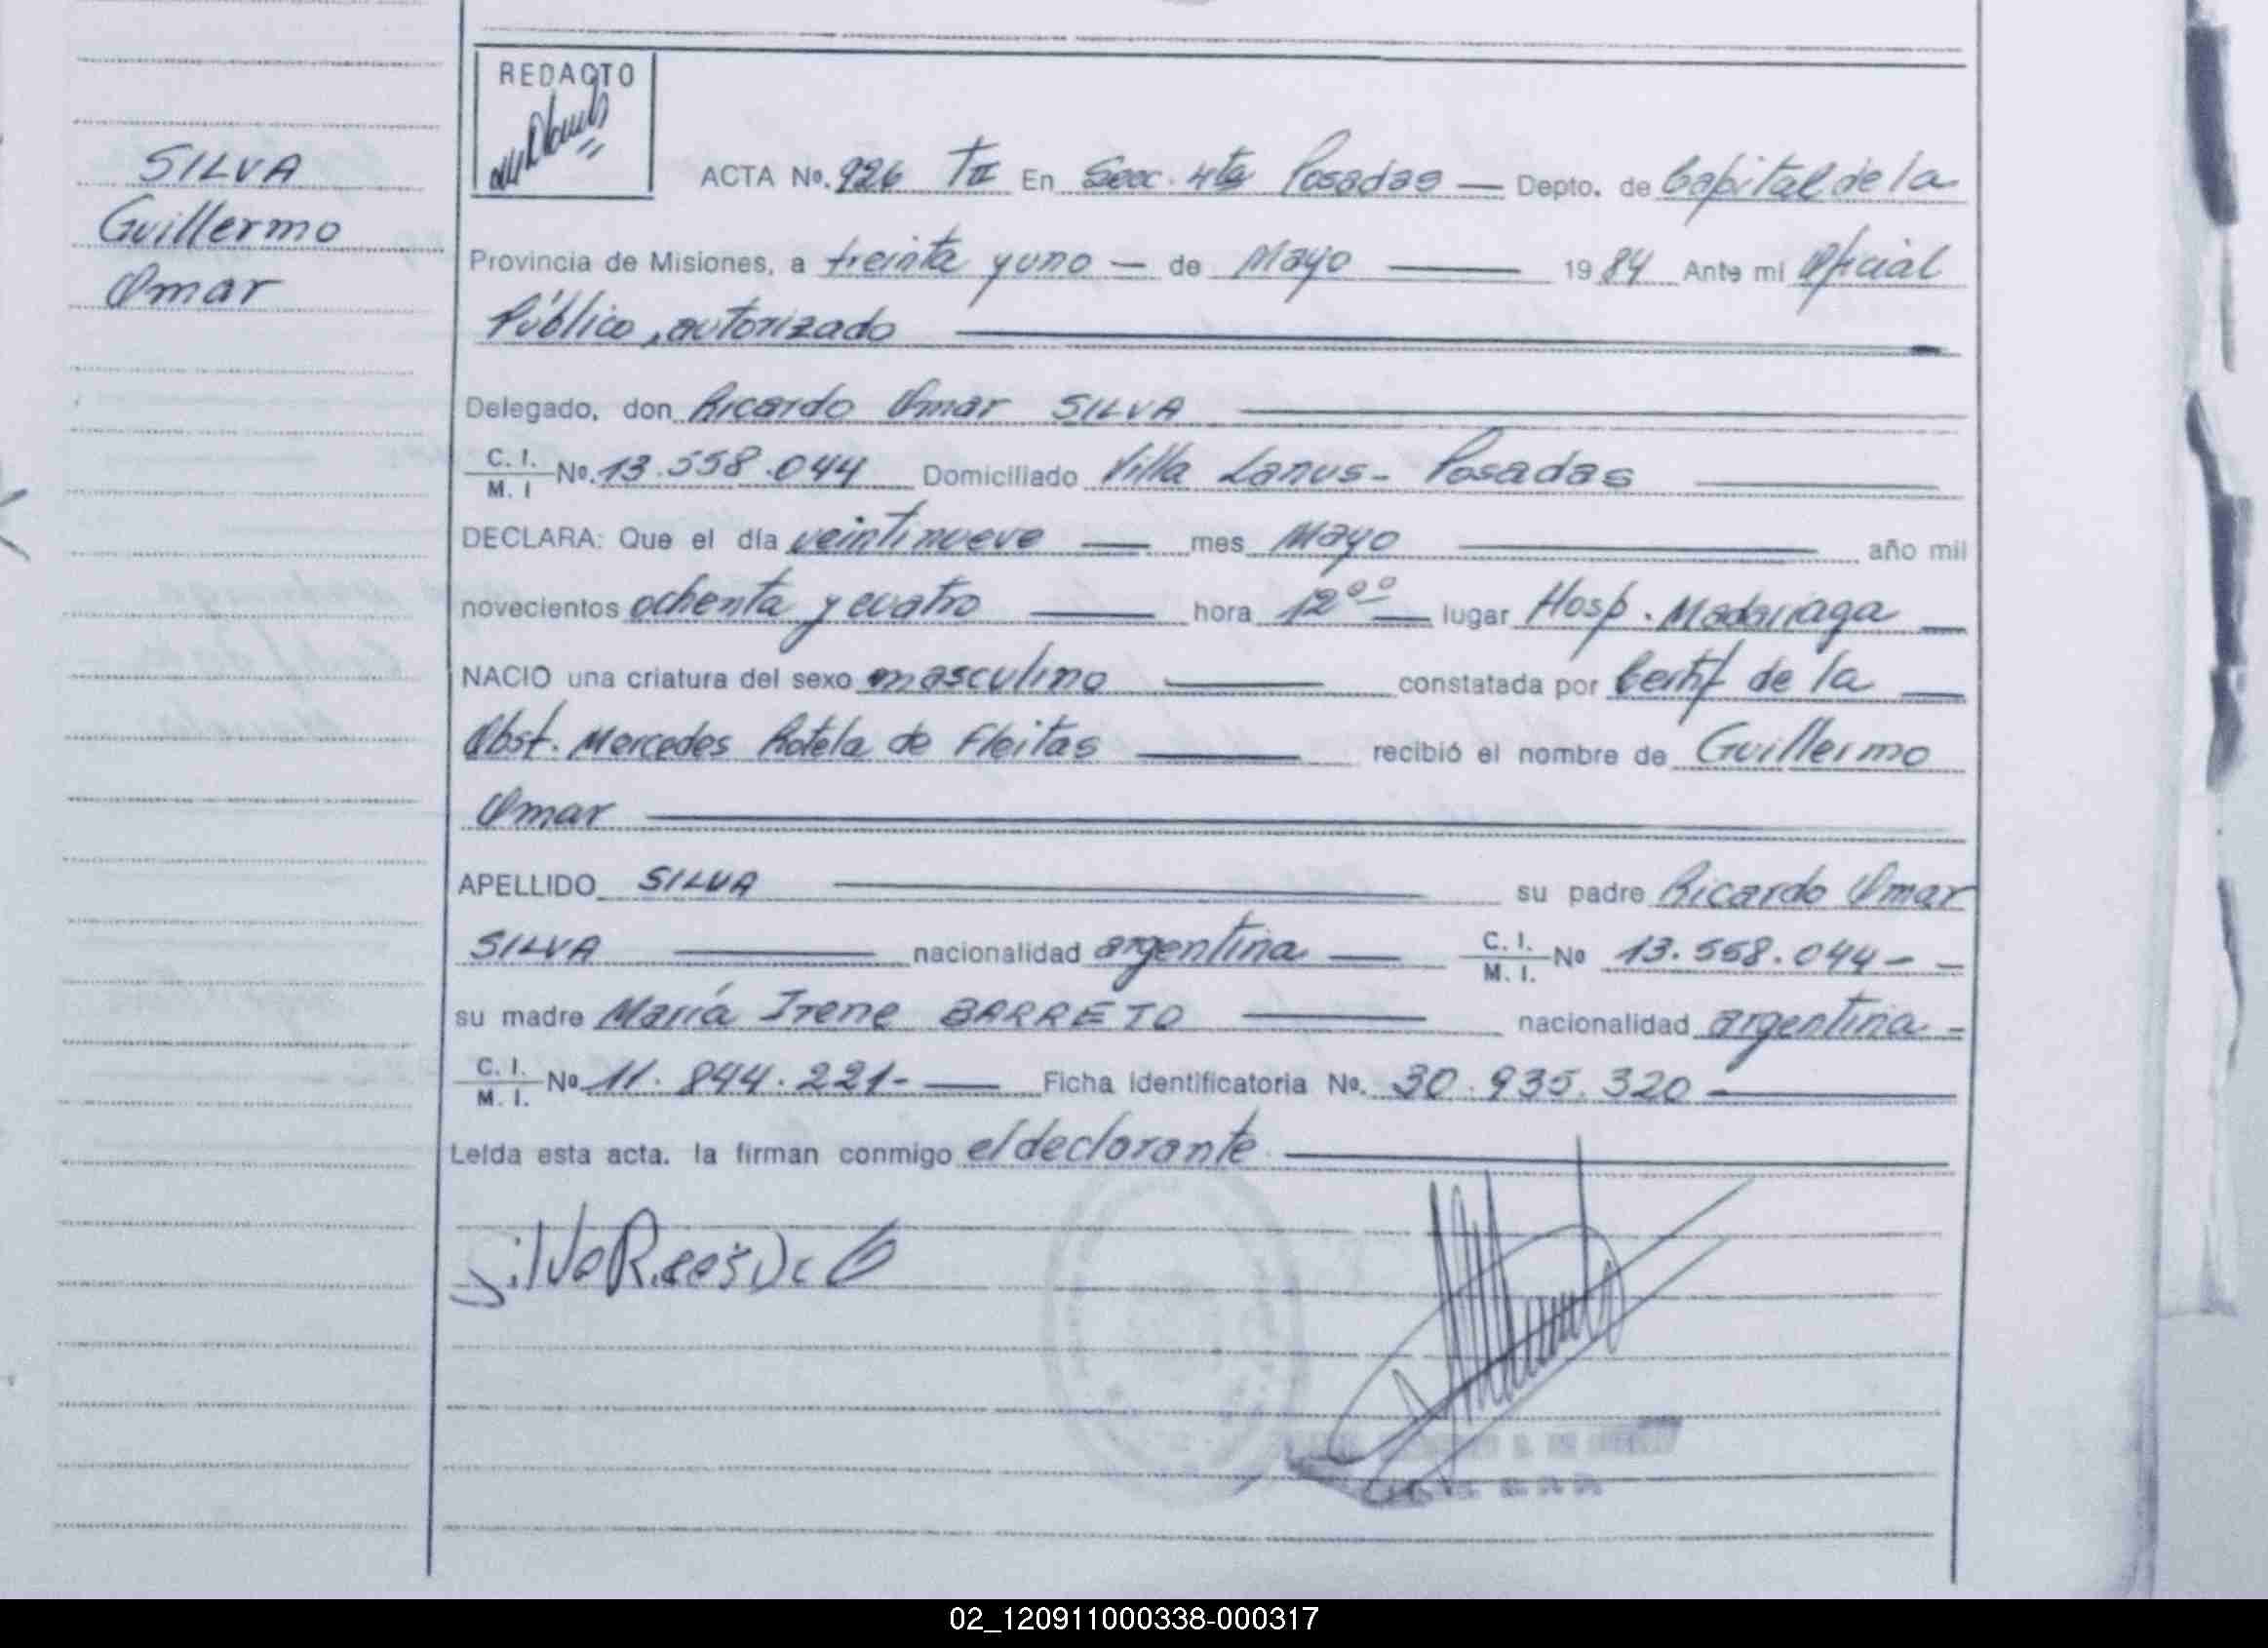 SILVA
Guillermo
Omar
REDACTO
ACTA Nº. 926 TII En Secc. 4ta Posadas — Depto. de Capital de la
Provincia de Misiones, a treinta y uno — de Mayo — 1984 Ante mi Oficial
Público, autorizado —
Delegado, don Ricardo Omar SILVA —
C. I. / M. I Nº. 13.558.044 Domiciliado Villa Lanus - Posadas —
DECLARA: Que el día veintinueve — mes Mayo — año mil
novecientos ochenta y cuatro — hora 12ºº — lugar Hosp. Madariaga —
NACIO una criatura del sexo masculino — constatada por Certif de la —
Obst. Mercedes Rotela de Fleitas — recibió el nombre de Guillermo
Omar —
APELLIDO SILVA — su padre Ricardo Omar
SILVA — nacionalidad argentina — C. I. / M. I. Nº 13.558.044 - -
su madre María Irene BARRETO — nacionalidad argentina -
C. I. / M. I. Nº 11.844.221- — Ficha Identificatoria Nº. 30.935.320 —
Leída esta acta. la firman conmigo el declarante —
Silva Ricardo O
02_120911000338-000317